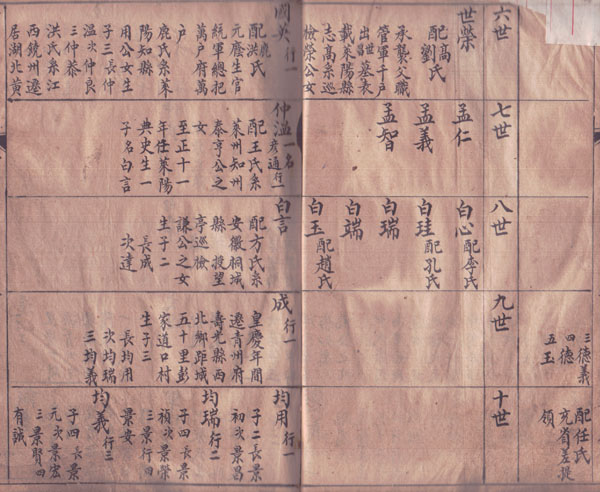 三德義
四德
五玉
配任氏
充省差提
領
六世
世榮
配高氏
劉氏
承襲父職
管軍千戶
出世昌墓表
載萊陽縣
志高系巡
檢榮公女
行一
配鹿氏
洪氏
元蔭生官
統軍總把
萬戶府萬
戶
鹿氏系萊
陽知縣
用公女生
子三長仲
溫次仲良
三仲恭
洪氏系江
西饒州遷
居湖北黃
七世
孟仁
孟義
孟智
仲溫 一名彥通行一
配王氏系
萊州知州
泰亨公之
女
至正十一
年任萊陽
典史生一
子名白言
八世
白心 配李氏
白珪 配孔氏
白瑞
白端
白玉 配趙氏
白言
配方氏系
安徽桐城
縣投望
亭巡檢
謙公之女
生子二
長成
次達
九世
成 行一
皇慶年間
遷青州府
壽光縣西
北鄉距城
五十里彭
家道口村
生子三
長均用
次均瑞
三均義
十世
均用 行一
子二長景
初次景昌
均瑞 行二
子四長景
禎次景榮
三景行四
景安
均義 行三
子四長景
元次景宏
三景賢四
有誠